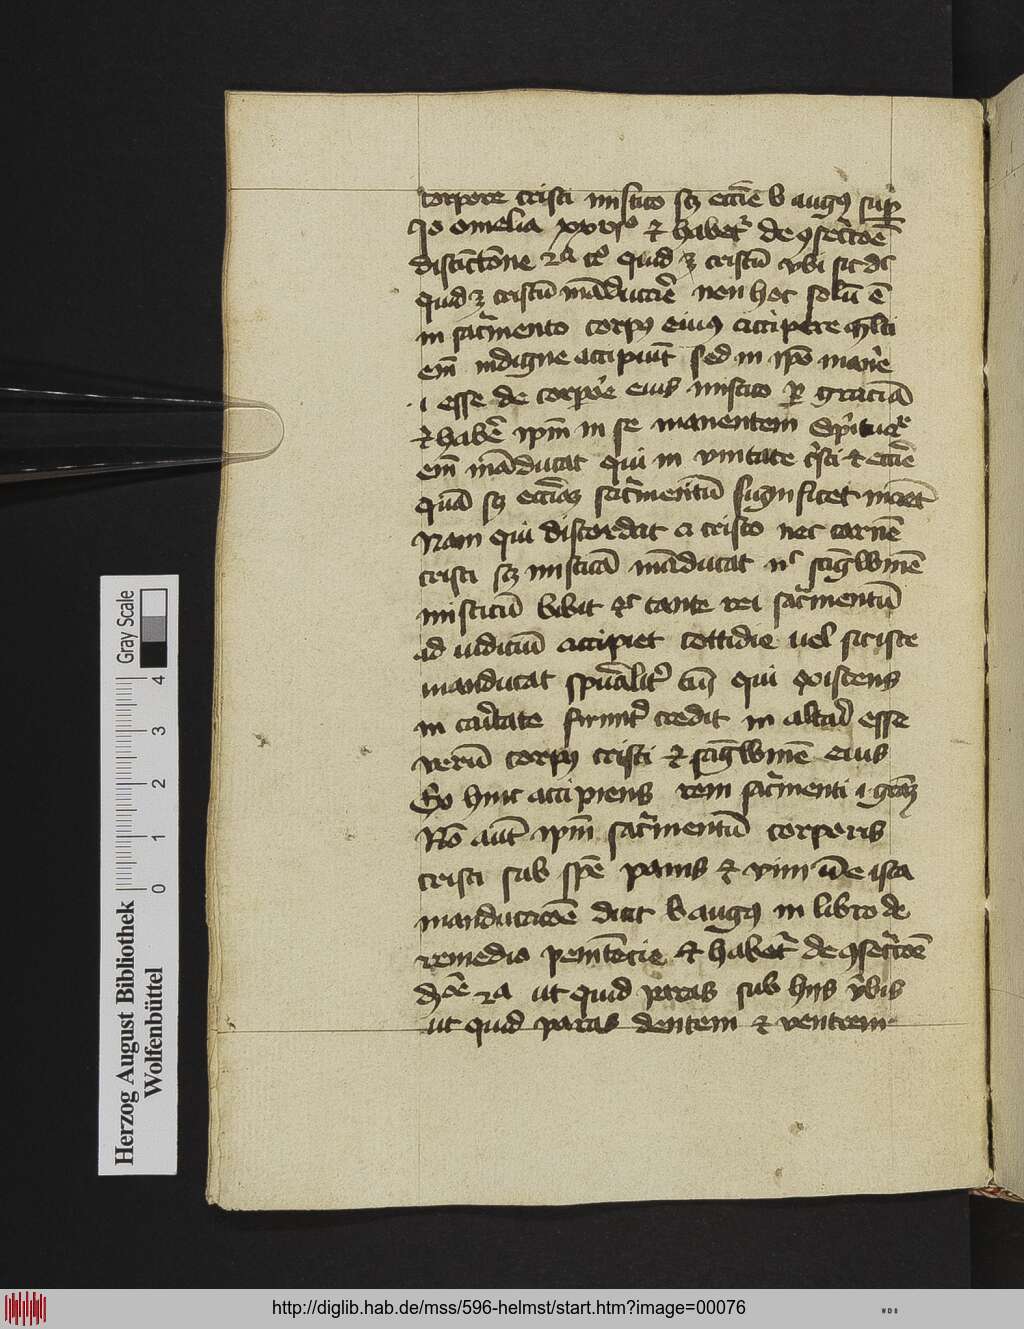 corpore cristi mistico scꝫ eccīe b augꝰ suꝑ
Jo omelia xxvjᵒ ⁊ habetᷣ de ꝯsecᷓcōe
distictōne 2ᵃ cᵒ quid ꝫ cristū vbi sic dᷣ
Quid ꝫ cristū māducarē non hoc solū ē
in sacᷓmento corpꝰ eiꝰ accipere mlti
em̄ indigne accipiūt sed in ip̄o manēr
.i esse de corpoᷣe eius mistico ꝑ graciā
⁊ habēr ip̄m in se manentem
em̄ māducat qui in vnitate cᷓsti ⁊ eccīe
Quā scꝫ sacᷓmentū significet manet
Nam qui discordat a cristo nec carnē
cristi scꝫ misticā māducat nᶜ sāgwinē
misticū bibit tante rei sacᷓmentū
ad iudiciū accipiet cottidie uel sic iste
manducat spūalitᷣ qui
in caᷓitate firmitᷣ credit in altaᷓi esse
verū corpꝰ cristi ⁊ sāgwinē eius
Eᷓo huic accipiens rem sacᷓmenti .i
Nō aūt ip̄m sacᷓmentū corporis
cristi sub spē panis ⁊ vini vn̄e ista
manducacōe dicit b augꝰ in libro de
remedio penitēcie ⁊ habetᷣ de ꝯsecᷓcōe
2ᵃ ut quid paras sub hijs vᷣbis
ut quid paras dentem ⁊ ventrem
Herzog August Bibliothek
Wolfenbüttel
0 1 2 3 4
Gray Scale
http://diglib.hab.de/mss/596-helmst/start.htm?image=00076